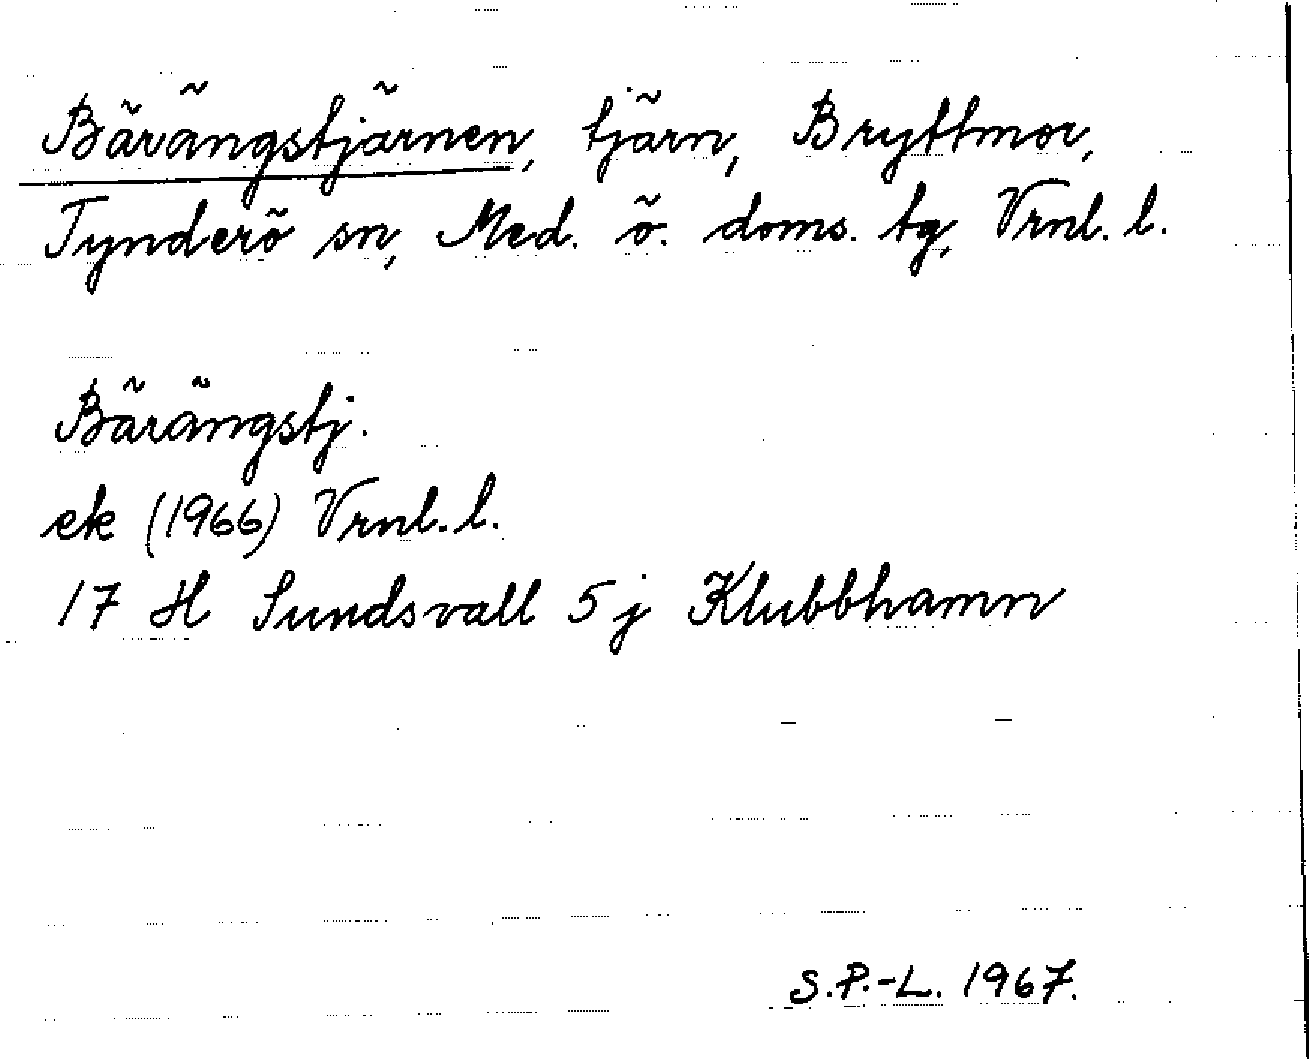 Bärängstjärnen, tjärn, Bryttmor,
Tynderö sn, Med. ö. doms. tg, Vrnl. l.
Bärängstj.
ek (1966) Vrnl. l.
17 H Sundsvall 5 j Klubbhamn
S.P.-L. 1967.